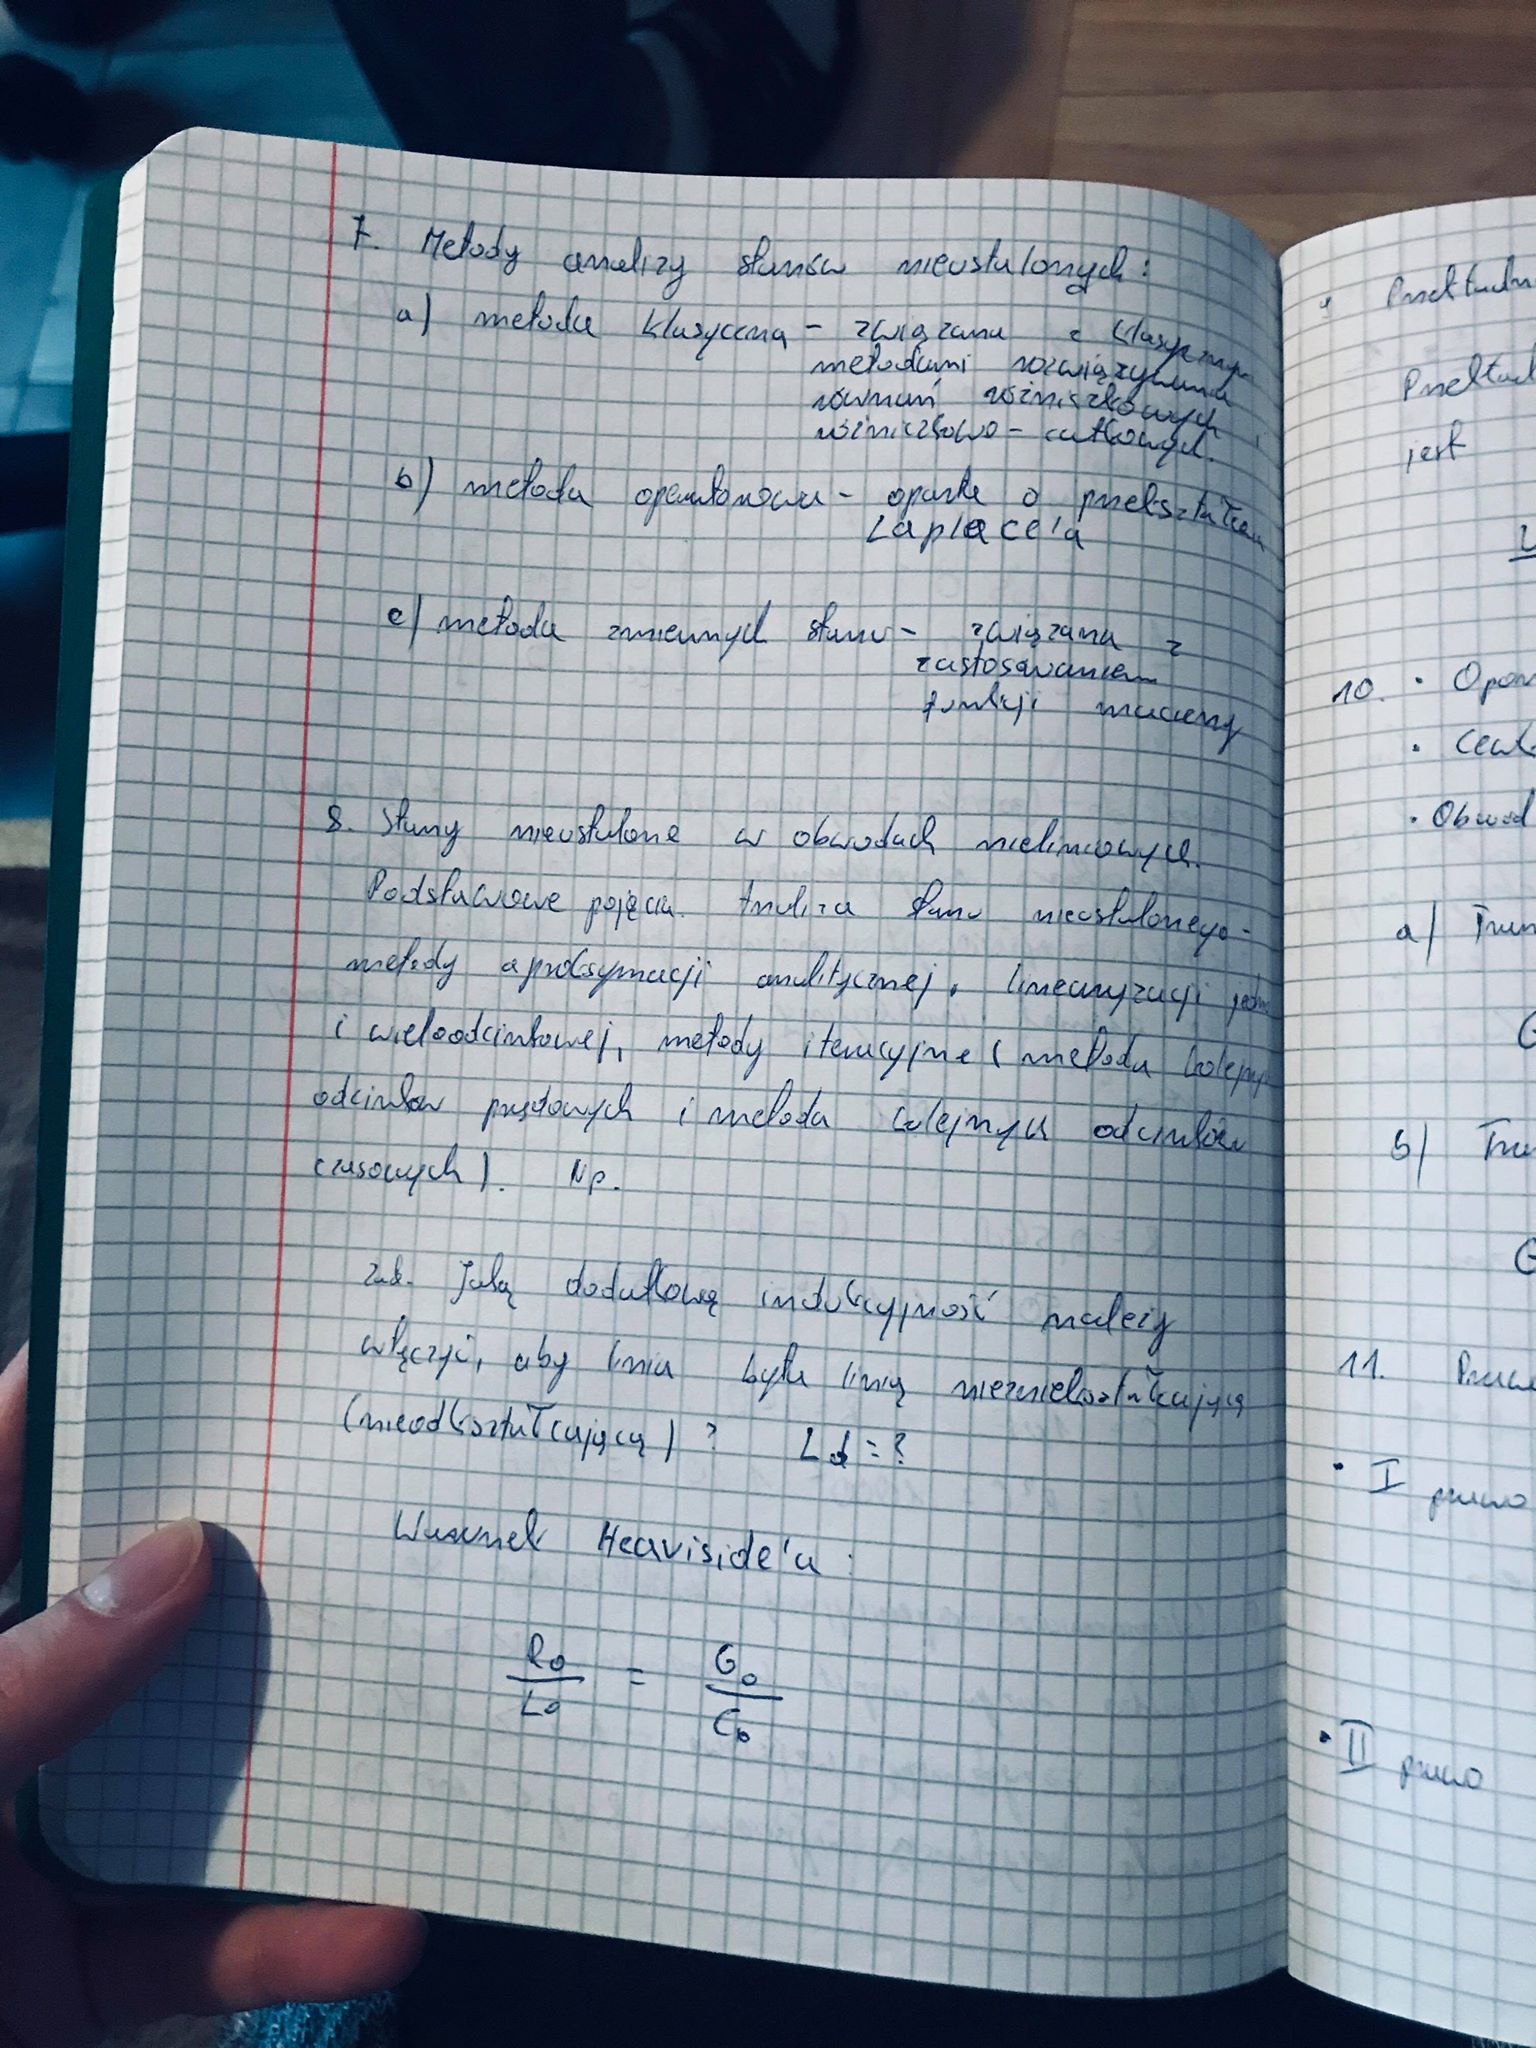 7. Metody analizy stanów nieustalonych:
a) metoda klasyczna - związana z klasycznymi
metodami rozwiązywania
równań różniczkowych,
różniczkowo - całkowych.
b) metoda operatorowa - oparta o przekształcenia
Laplace'a
c) metoda zmiennych stanu - związana z
zastosowaniem
funkcji macierzy
8. Stany nieustalone w obwodach nieliniowych.
Podstawowe pojęcia. Analiza stanu nieustalonego -
metody aproksymacji analitycznej, linearyzacji jedno
i wieloodcinkowej, metody iteracyjne (metoda kolejnych
odcinków prądowych i metoda kolejnych odcinków
czasowych). Np.
zad. Jaką dodatkową indukcyjność należy
włączyć, aby linia była linią niezniekształcającą
(nieodkształcającą)? Ld = ?
Warunek Heaviside'a:
R0 / L0 = G0 / C0
jest
10. •
•
• Obwód
a)
b)
11.
• I prawo
• II prawo